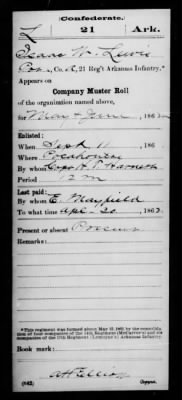 Confederate.
L 21 Ark.
Isaac W. Lewis
Co. , 21 Reg't Arkansas Infantry.*
Appears on
Company Muster Roll
of the organization named above,
for May & June , 186
Enlisted:
When Sept 11 , 186
Where Pocahontas
By whom Capt
Period 12 m
Last paid:
By whom E. Mayfield
To what time Apl. 30 , 1862.
Present or absent Present
Remarks:
*This regiment was formed about May 15, 1862, by the consolidation of four companies of the 14th Regiment (McCarver's) and six companies of the 17th Regiment (Lemoyne's) Arkansas Infantry.
Book mark:
(642) Copyist.